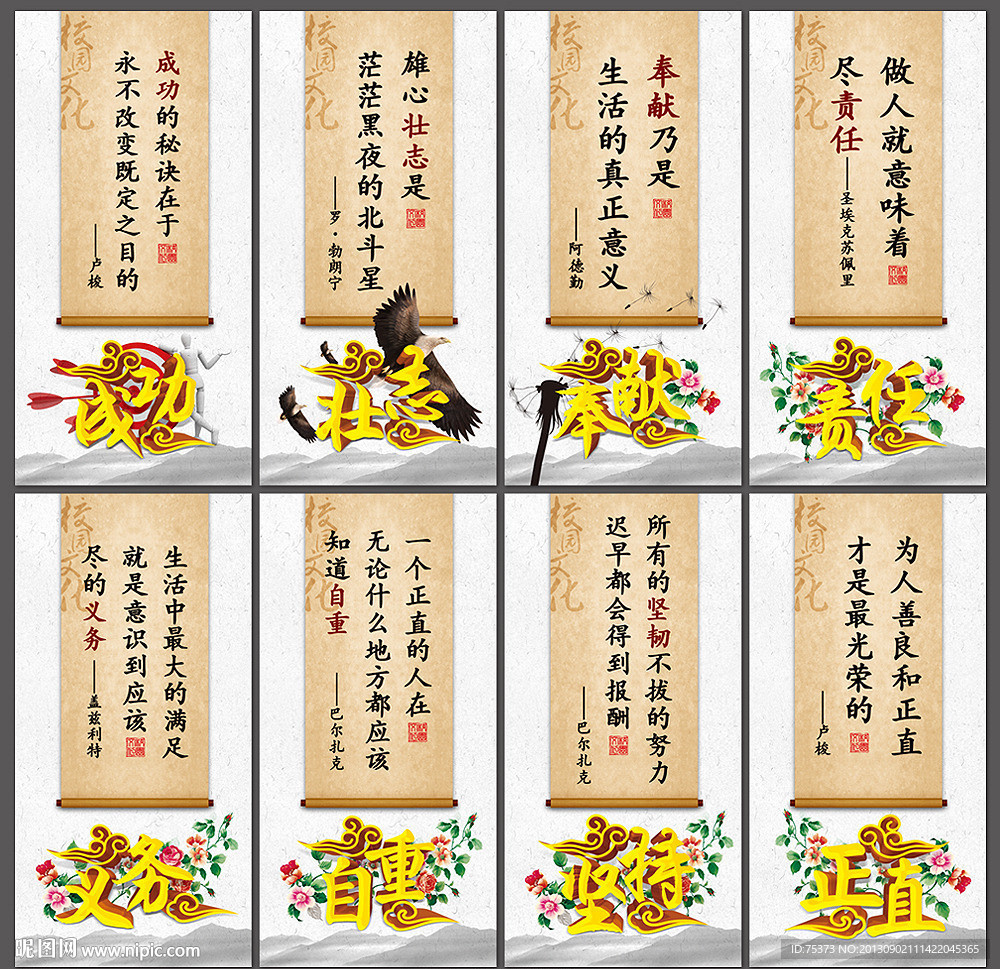 校园文化
成功的秘诀在于
永不改变既定之目的
——卢梭
成功
校园文化
雄心壮志是
茫茫黑夜的北斗星
——罗·勃朗宁
壮志
校园文化
奉献乃是
生活的真正意义
——阿德勤
奉献
校园文化
做人就意味着
尽责任
——圣埃克苏佩里
责任
校园文化
生活中最大的满足
就是意识到应该
尽的义务
——盖兹利特
义务
校园文化
一个正直的人在
无论什么地方都应该
知道自重
——巴尔扎克
自重
校园文化
所有的坚韧不拔的努力
迟早都会得到报酬
——巴尔扎克
坚持
校园文化
为人善良和正直
才是最光荣的
——卢梭
正直
昵图网 www.nipic.com
ID:75373 NO:20130902111422045365